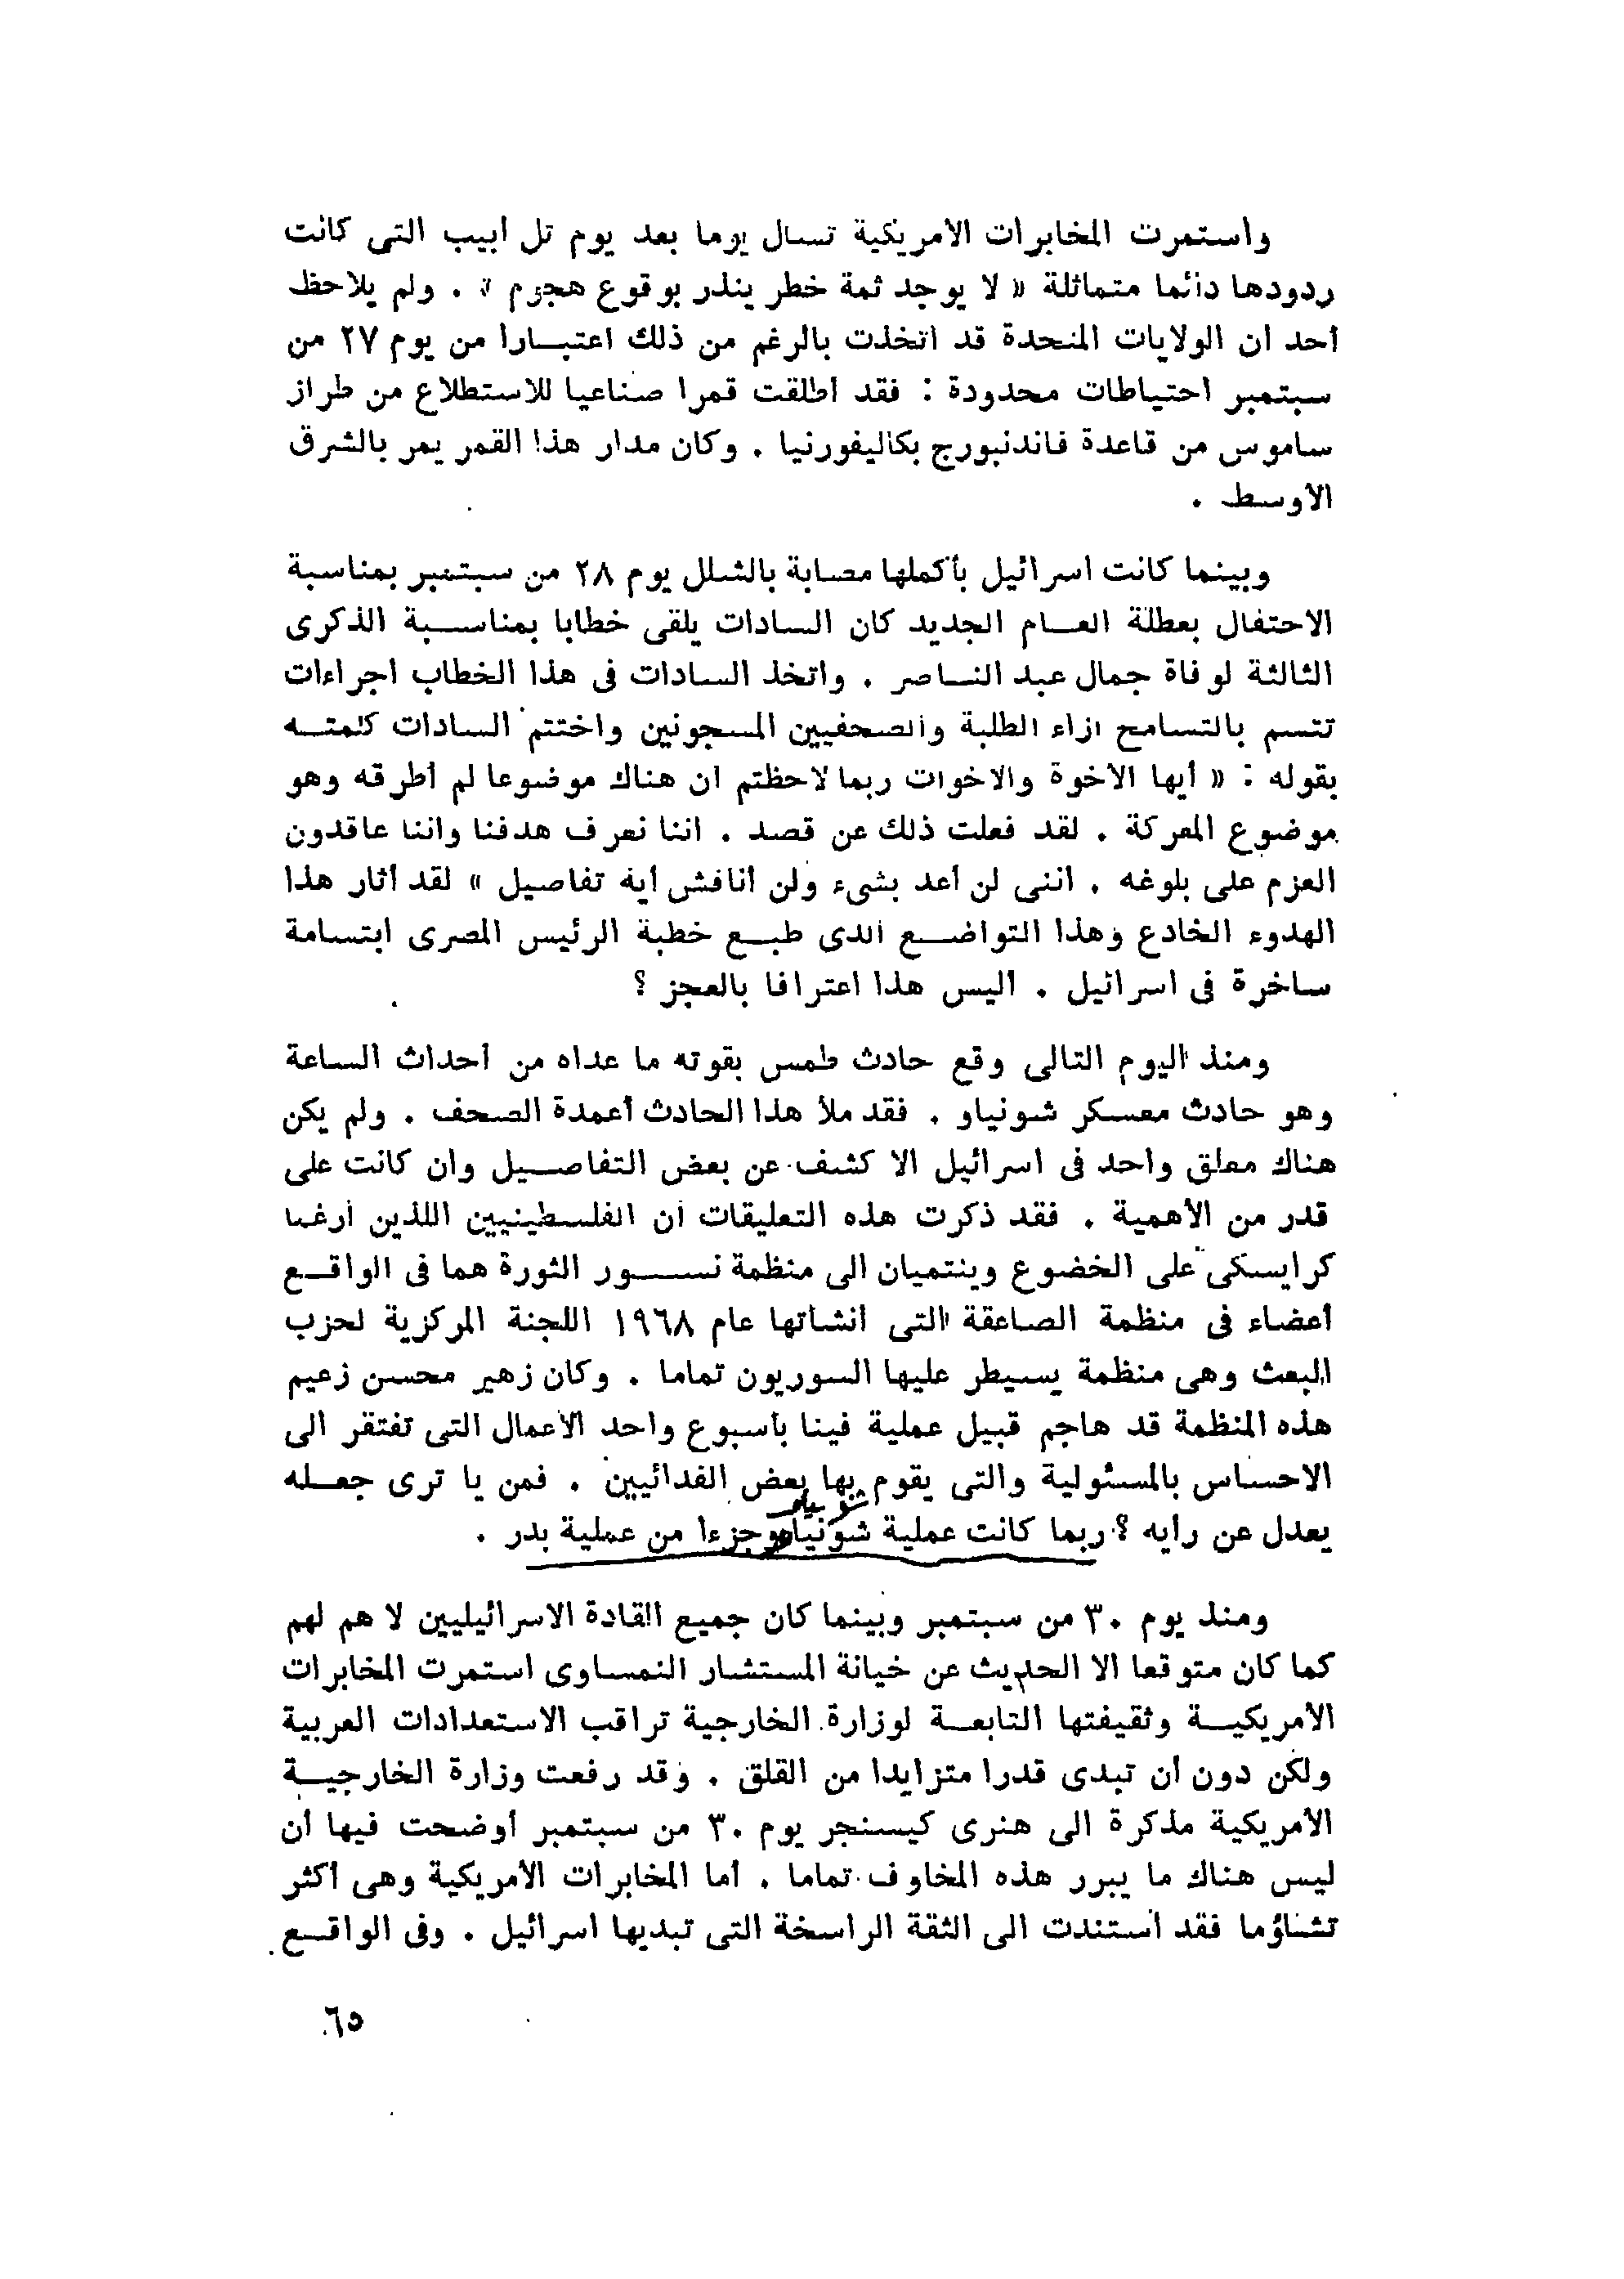 واستمرت المخابرات الأمريكية تسال يوما بعد يوم تل أبيب التى كانت
ردودها دائما متماثلة « لا يوجد ثمة خطر ينذر بوقوع هجوم » . ولم يلاحظ
أحد ان الولايات المتحدة قد اتخذت بالرغم من ذلك اعتبــارا من يوم ٢٧ من
سبتمبر احتياطات محدودة : فقد أطلقت قمرا صناعيا للاستطلاع من طراز
ساموس من قاعدة فاندنبورج بكاليفورنيا . وكان مدار هذا القمر يمر بالشرق
الأوسط .
وبينما كانت اسرائيل بأكملها مصابة بالشلل يوم ٢٨ من سبتمبر بمناسبة
الاحتفال بعطلة العــام الجديد كان السادات يلقى خطابا بمناســبة الذكرى
الثالثة لوفاة جمال عبد النــاصر . واتخذ السادات فى هذا الخطاب اجراءات
تتسم بالتسامح ازاء الطلبة والصحفيين المسجونين واختتم السادات كلمتــه
بقوله : « أيها الأخوة والأخوات ربما لاحظتم ان هناك موضوعا لم أطرقه وهو
موضوع المعركة . لقد فعلت ذلك عن قصد . اننا نعرف هدفنا واننا عاقدون
العزم على بلوغه . اننى لن أعد بشىء ولن أناقش أية تفاصيل » لقد أثار هذا
الهدوء الخادع وهذا التواضــع الذى طبــع خطبة الرئيس المصرى ابتسامة
ساخرة فى اسرائيل . أليس هذا اعترافا بالعجز ؟
ومنذ اليوم التالى وقع حادث طمس بقوته ما عداه من أحداث الساعة
وهو حادث معسكر شونياو . فقد ملأ هذا الحادث أعمدة الصحف . ولم يكن
هناك معلق واحد فى اسرائيل الا كشف عن بعض التفاصــيل وان كانت على
قدر من الأهمية . فقد ذكرت هذه التعليقات أن الفلسطينيين اللذين أرغما
كرايسكى على الخضوع وينتميان الى منظمة نســـور الثورة هما فى الواقــع
أعضاء فى منظمة الصاعقة التى انشاتها عام ١٩٦٨ اللجنة المركزية لحزب
البعث وهى منظمة يسيطر عليها السوريون تماما . وكان زهير محسن زعيم
هذه المنظمة قد هاجم قبيل عملية فينا بأسبوع واحد الأعمال التى تفتقر الى
الاحساس بالمسئولية والتى يقوم بها بعض الفدائيين . فمن يا ترى جعــله
يعدل عن رأيه ؟ ربما كانت عملية شونياو جزءا من عملية بدر .
ومنذ يوم ٣٠ من سبتمبر وبينما كان جميع القادة الاسرائيليين لا هم لهم
كما كان متوقعا الا الحديث عن خيانة المستشار النمساوى استمرت المخابرات
الأمريكيــة وثقيفتها التابعــة لوزارة الخارجية تراقب الاستعدادات العربية
ولكن دون أن تبدى قدرا متزايدا من القلق . وقد رفعت وزارة الخارجيــة
الأمريكية مذكرة الى هنرى كيسنجر يوم ٣٠ من سبتمبر أوضحت فيها أن
ليس هناك ما يبرر هذه المخاوف تماما . أما المخابرات الأمريكية وهى أكثر
تشاؤما فقد استندت الى الثقة الراسخة التى تبديها اسرائيل . وفى الواقــع
٦٥